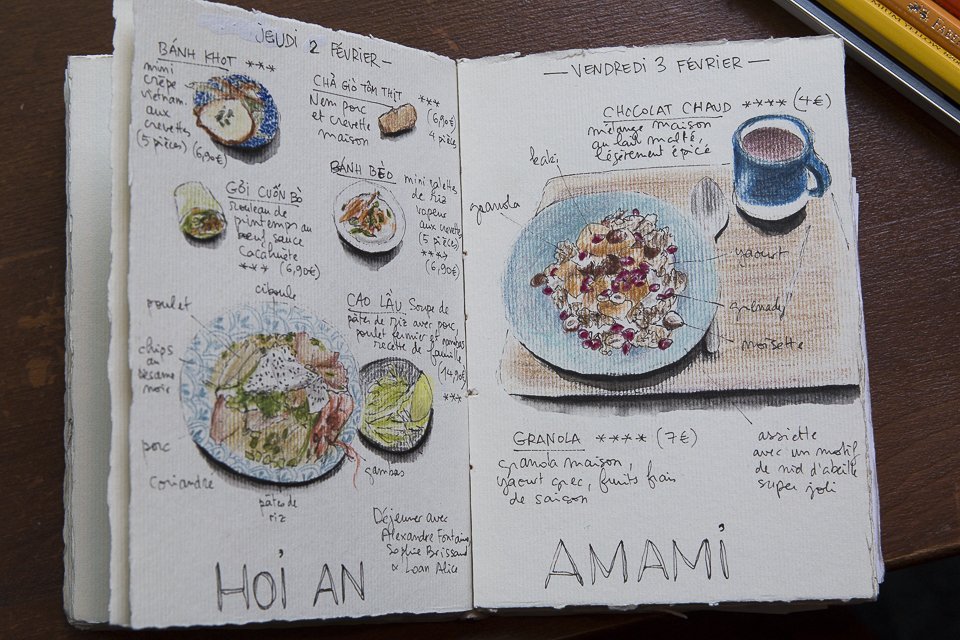 JEUDI 2 FÉVRIER –
BÁNH KHOT ***
mini
crêpe
vietnam.
aux
crevettes
(5 pièces) (6,90€)
CHẢ GIÒ TÔM THỊT
***
Nem porc
et crevette
maison
(6,90€)
4 pièces
GỎI CUỐN BÒ
rouleau de
printemps au
bœuf, sauce
cacahuète
*** (6,90€)
BÁNH BÈO
mini galettes
de riz
vapeur
aux crevettes
(5 pièces)
****
(6,90€)
CAO LẦU Soupe de
pâtes de riz avec porc,
poulet fermier et gambas
recette de famille
(14,90€)
***
poulet
ciboule
chips
au
sésame
noir
porc
coriandre
pâtes de
riz
gambas
Déjeuner avec
Alexandre Fontaine
Sophie Brissaud
& Loan Alice
HOI AN
– VENDREDI 3 FÉVRIER –
CHOCOLAT CHAUD **** (4€)
mélange maison
au lait malté,
légèrement épicé
kaki
granola
yaourt
grenade
noisette
GRANOLA **** (7€)
granola maison,
yaourt grec, fruits frais
de saison
assiette
avec un motif
de nid d'abeille
super joli
AMAMI